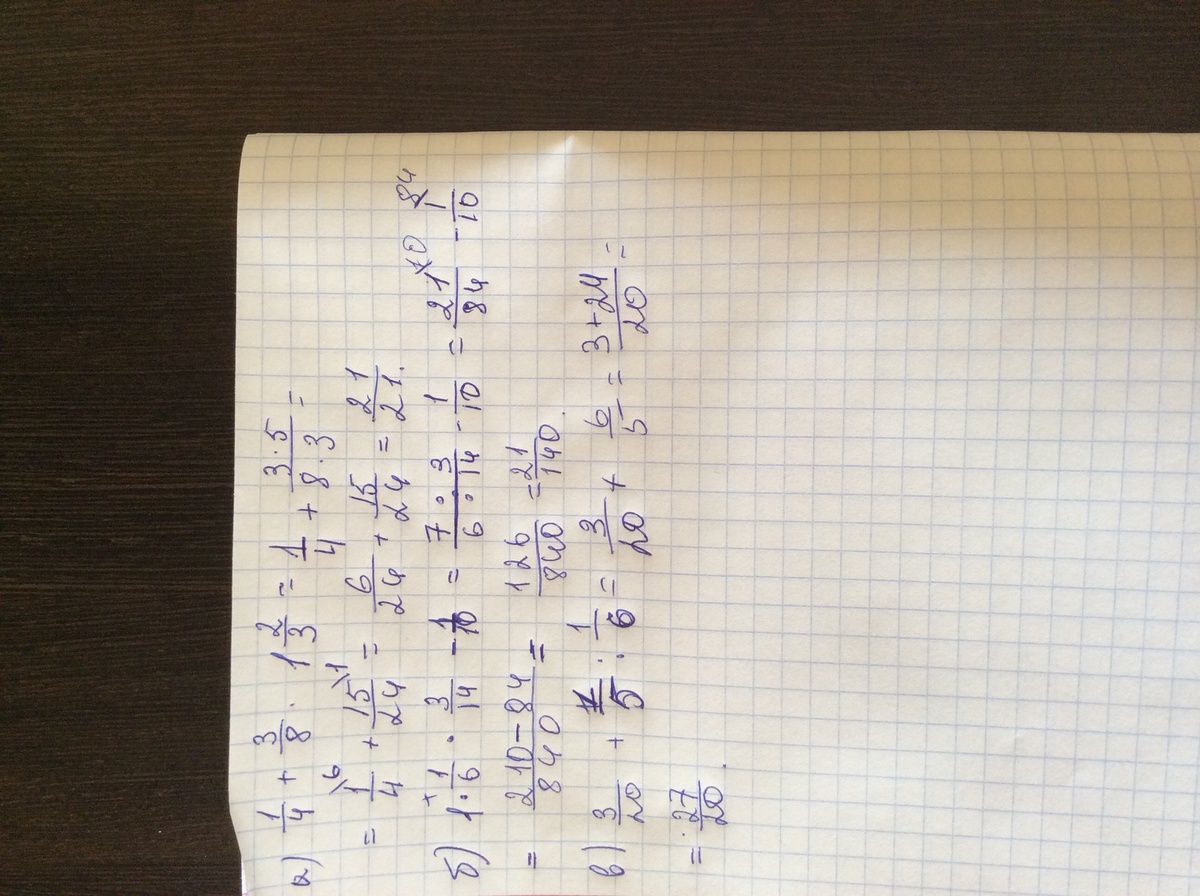 а) 1/4 + 3/8 · 1 2/3 = 1/4 + 3·5/8·3 =
= 1\6/4 + 15\1/24 = 6/24 + 15/24 = 21/21.
б) 1 · 1/6 · 3/14 - 1/10 = 7·3/6·14 - 1/10 = 21\10/84 - 1\84/10
= 210-84/840 = 126/840 = 21/140.
в) 3/20 + 1/5 : 1/6 = 3/20 + 6/5 = 3+24/20 =
= 27/20.